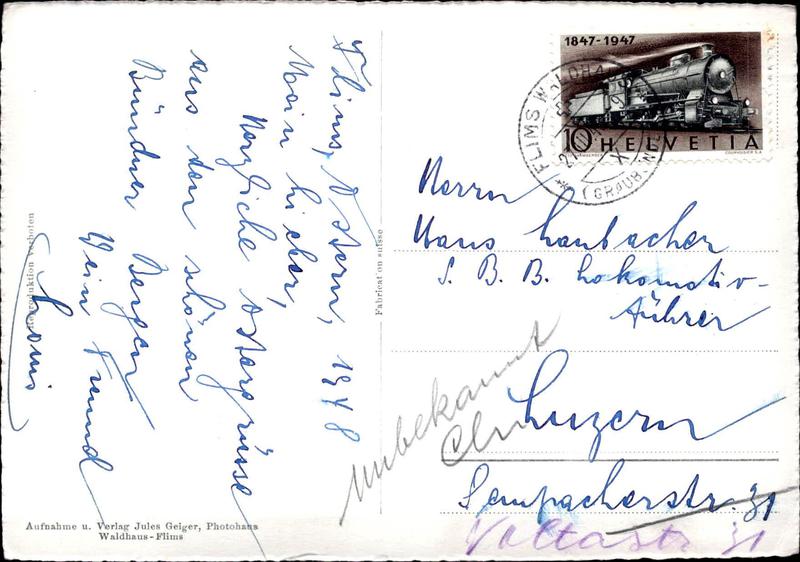 Flims, Ostern, 1948
Mein lieber,
Herzliche Ostergrüsse
aus den schönen
Bündner Bergen
Dein Freund
Louis
Reproduktion verboten
Fabrication suisse
Aufnahme u. Verlag Jules Geiger, Photohaus
Waldhaus-Flims
1847-1947
10 HELVETIA
COURVOISIER S.A.
FLIMS WALDHAUS
(GRAUB.
Herrn
Hans Laubacher
S. B. B. Lokomotiv-
Führer
Luzern
Sempacherstr. 31
Voltastr 31
Unbekannt